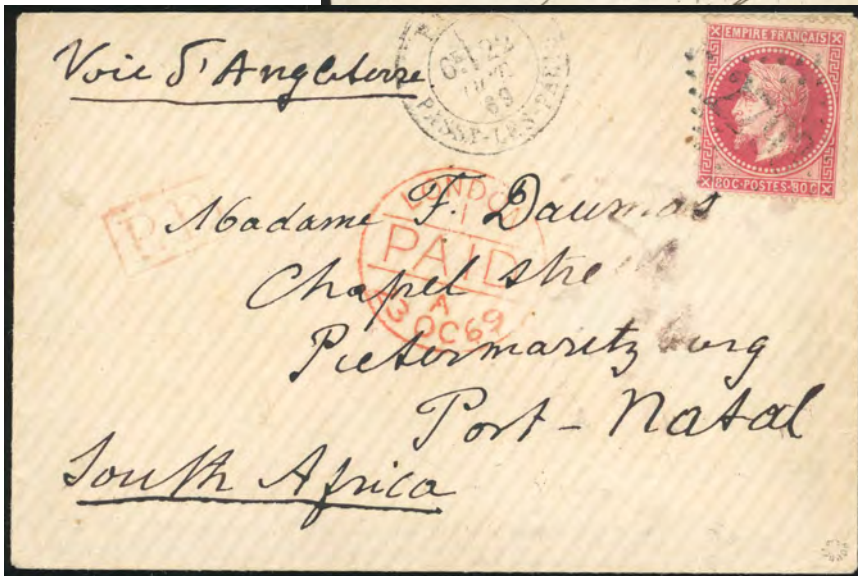 Voie d'Angleterre
22
OCT
69
PASSY-LES-PARIS
EMPIRE FRANÇAIS
80C·POSTES·80C
P.P.
LONDON
PAID
A
23 OC 69
Madame F. Daumas
Chapel stre
Pietermaritzburg
Port-Natal
South Africa